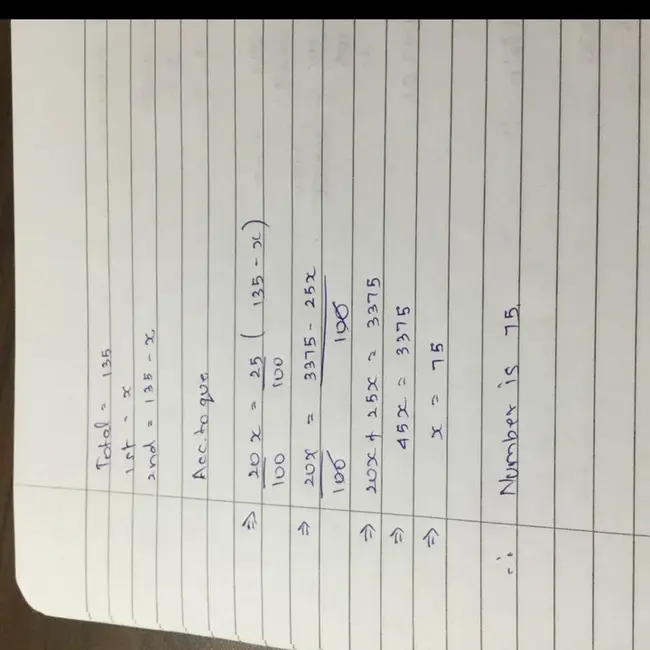 Total = 135
1st = x
2nd = 135 - x
Acc. to que.
⇒ 20/100 x = 25/100 (135 - x)
⇒ 20x/100 = 3375 - 25x/100
⇒ 20x + 25x = 3375
⇒ 45x = 3375
⇒ x = 75
∴ Number is 75.